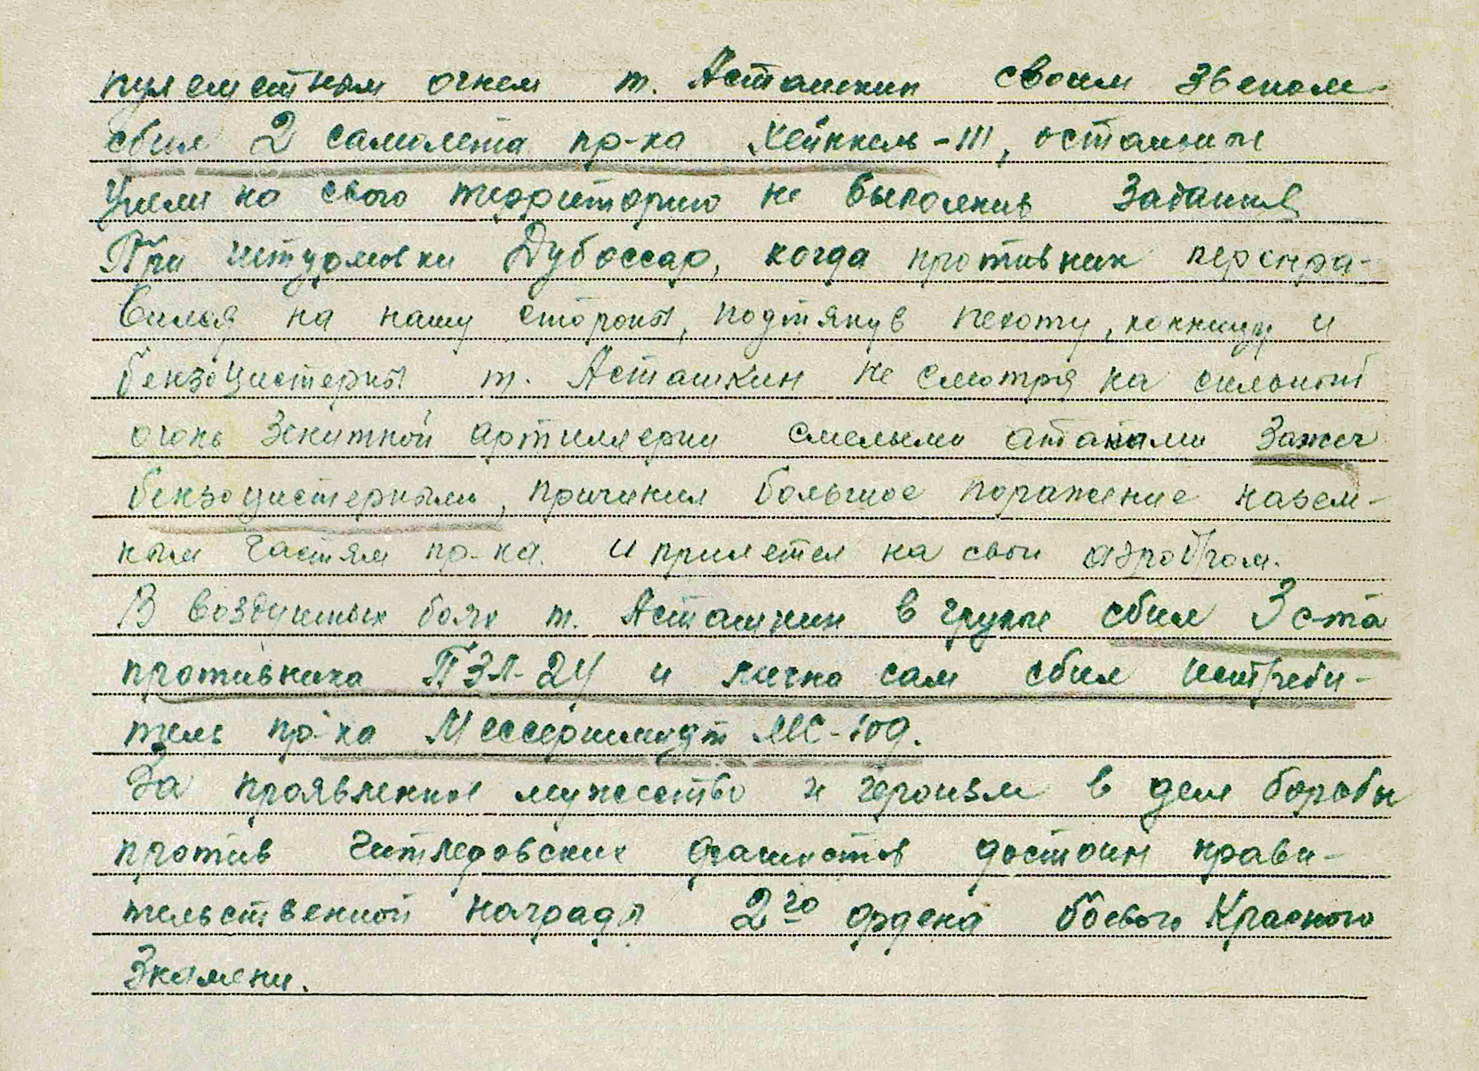 пулеметным огнем т. Асташкин своим звеном
сбил 2 самолета пр-ка Хейнкель-111, остальные
ушли на свою территорию не выполнив задания
При штурмовки Дубоссар, когда противник перепра-
вился на нашу стороны, подтянув пехоту, конницу и
бензоцистерны т. Асташкин не смотря на сильный
огонь зенитной артиллерии смелыми атаками зажег
бензоцистерными, причинил большое поражение назем-
ным частям пр-ка. и прилетел на свой аэродром.
В воздушных боях т. Асташкин в группе сбил 3 с-та
противника ПЗЛ-24 и лично сам сбил истреби-
тель пр-ка Мессершмидт МС-109.
За проявленное мужество и героизм в деле борьбы
против гитлеровских фашистов достоин прави-
тельственной награды 2го ордена боевого Красного
Знамени.